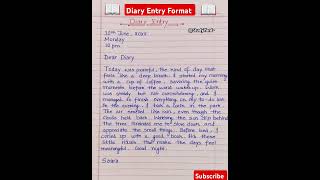 Diary Entry Format
Diary Entry
10th June,
Monday
10 pm
Dear Diary
Today was peaceful, the kind of day that
feels like a deep breath. I started my morning
with a cup of coffee, savoring the quiet
moments before the world wakes up. Work
was steady but not overwhelming, and I
managed to finish everything on my to-do list
In the evening, I took a walk in the park.
The air smelled like rain, even though the
clouds held back. Watching the sun dip behind
the trees reminded me to slow down and
appreciate the small things. Before bed, I
curled up with a good book. It's these
little rituals that make the days feel
meaningful. Good night.
Subscribe